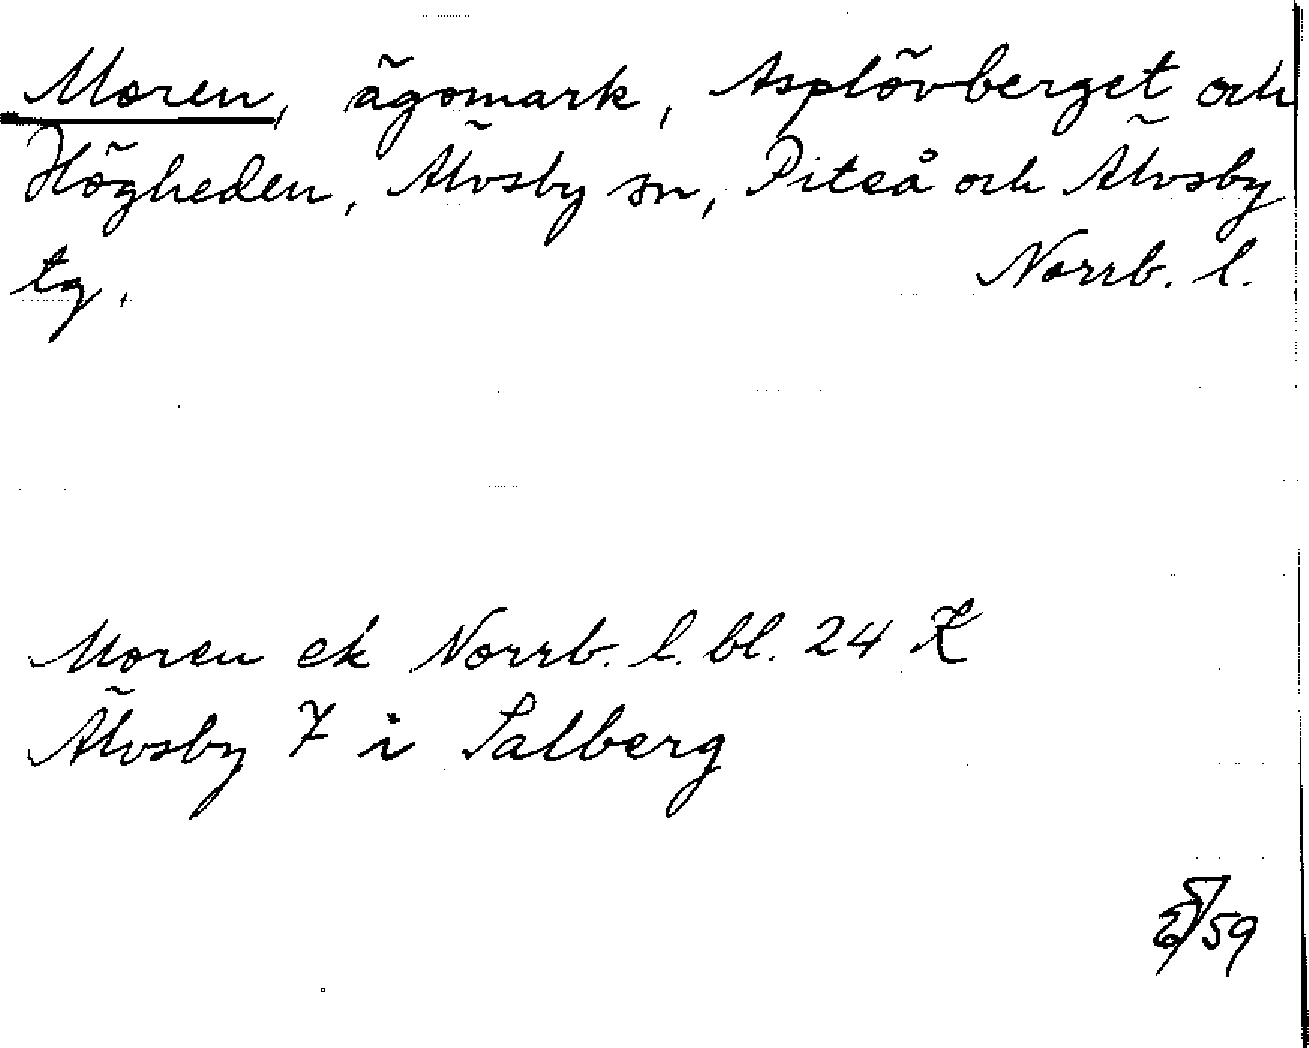 Moren, ägomark, Asplövberget och
Högheden, Älvsby sn, Piteå och Älvsby
tg. Norrb. l.
Moren ek Norrb. l. bl. 24
Älvsby 7 i Salberg
59